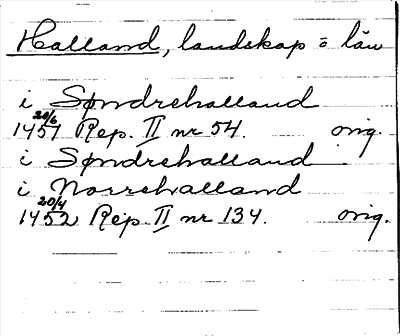 Halland, landskap o län
i Søndrehalland
1451 20/6 Rep. II nr 54. orig.
i Søndrehalland
i Norrehalland
1452 20/4 Rep. II nr 134. orig.